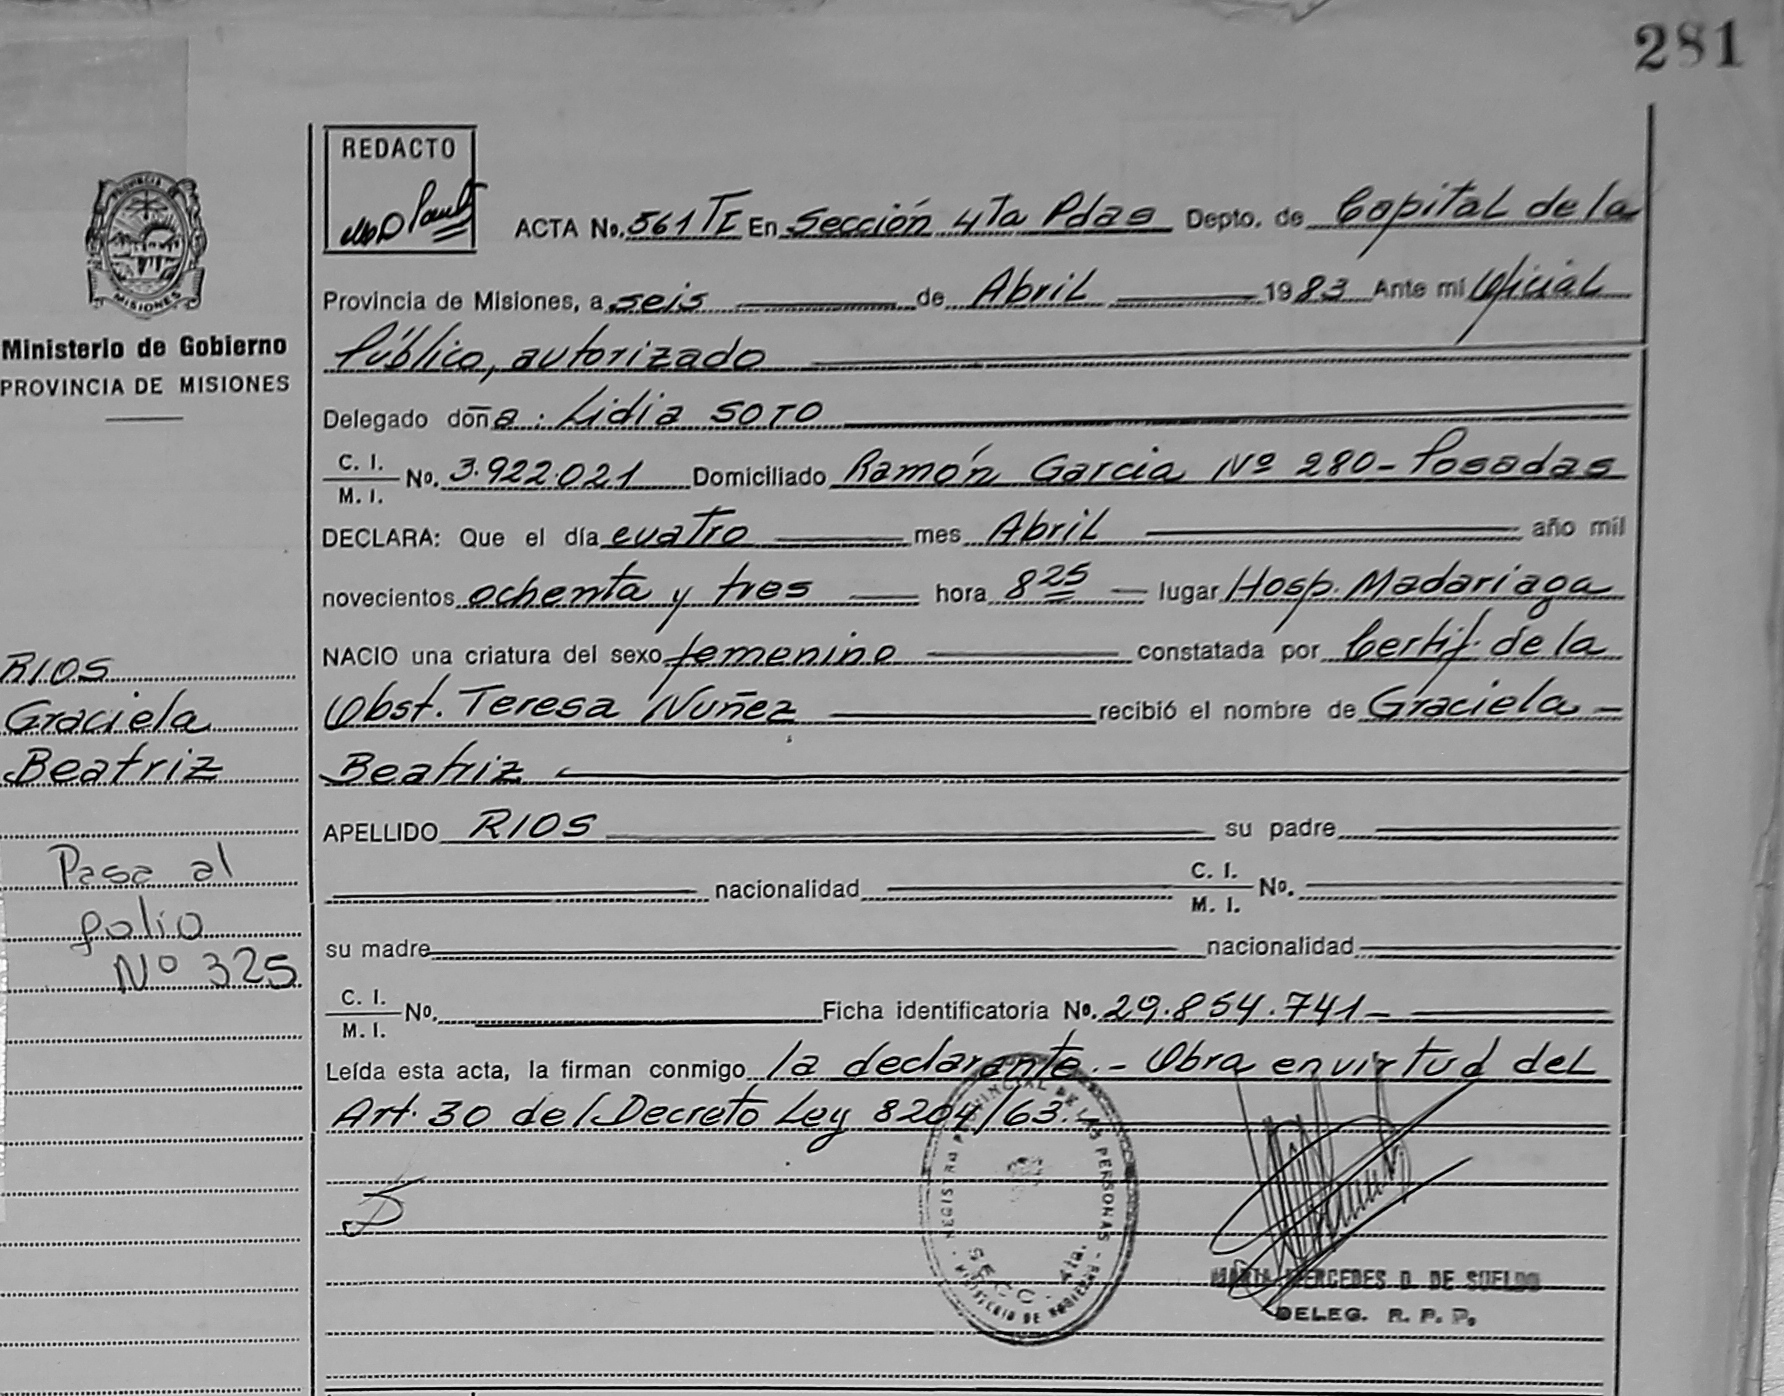 281
REDACTO
ACTA No. 561 TE En Sección 4Ta Pdas Depto. de Capital de la
Provincia de Misiones, a seis de Abril 1983 Ante mi Oficial
Público, autorizado
Delegado doña: Lidia SOTO
C. I.
M. I. No. 3.922.021 Domiciliado Ramón Garcia Nº 280 - Posadas
DECLARA: Que el día cuatro mes Abril año mil
novecientos ochenta y tres hora 8 25 lugar Hosp. Madariaga
NACIO una criatura del sexo femenino constatada por Certif. de la
Obst. Teresa Nuñez recibió el nombre de Graciela -
Beatriz
APELLIDO RIOS su padre
nacionalidad C. I.
M. I. No.
su madre nacionalidad
C. I.
M. I. No. Ficha identificatoria No. 29.854.741 -
Leída esta acta, la firman conmigo la declarante. - Obra en virtud del
Art. 30 del Decreto Ley 8204/63. -
PROVINCIA DE
MISIONES
Ministerio de Gobierno
PROVINCIA DE MISIONES
RIOS
Graciela
Beatriz
Pasa al
folio
Nº 325
REGISTRO PROVINCIAL DE LAS PERSONAS
SECC. 4ta.
MINISTERIO DE GOBIERNO
MARIA MERCEDES D. DE SUELDO
DELEG. R. P. P.